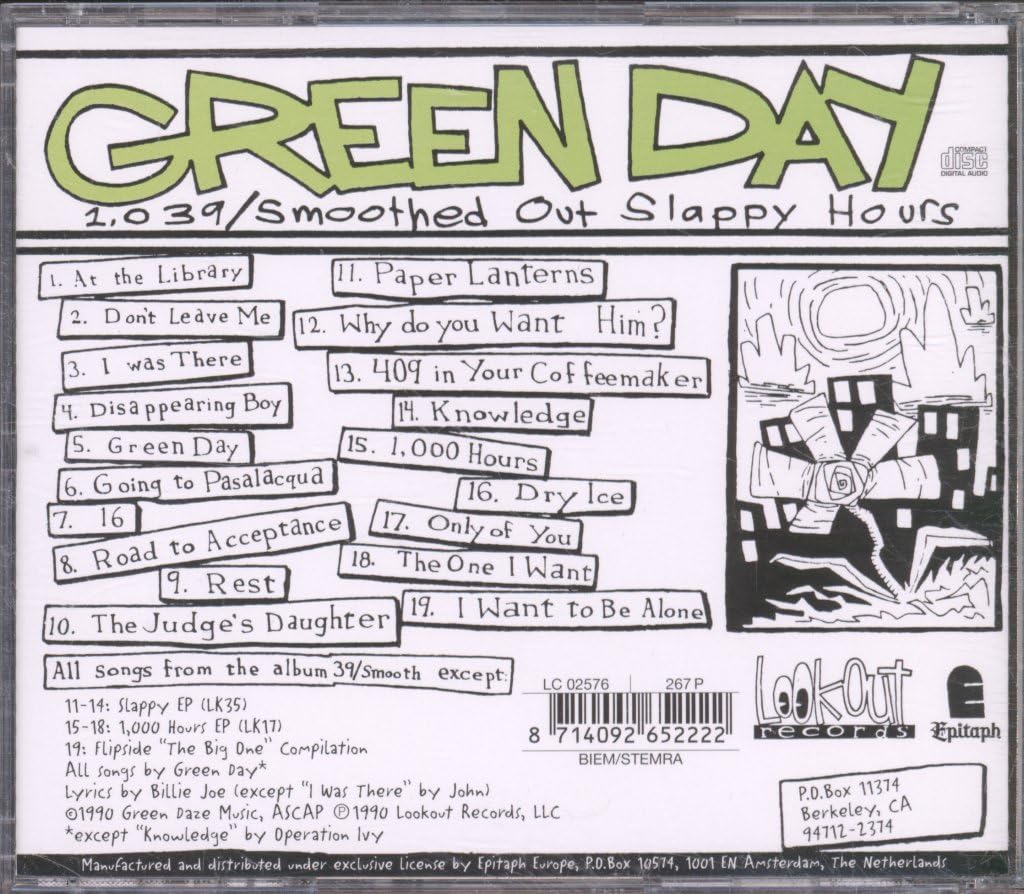 GREEN DAY
COMPACT
disc
DIGITAL AUDIO
1,039/Smoothed Out Slappy Hours
1. At the Library
2. Don't Leave Me
3. I was There
4. Disappearing Boy
5. Green Day
6. Going to Pasalacqua
7. 16
8. Road to Acceptance
9. Rest
10. The Judge's Daughter
11. Paper Lanterns
12. Why do you Want Him?
13. 409 in Your Coffeemaker
14. Knowledge
15. 1,000 Hours
16. Dry Ice
17. Only of You
18. The One I Want
19. I Want to Be Alone
All songs from the album 39/Smooth except:
11-14: Slappy EP (LK35)
15-18: 1,000 Hours EP (LK17)
19: Flipside "The Big One" Compilation
All songs by Green Day*
Lyrics by Billie Joe (except "I Was There" by John)
©1990 Green Daze Music, ASCAP ℗1990 Lookout Records, LLC
*except "Knowledge" by Operation Ivy
LC 02576 267 P
8 714092 652222
BIEM/STEMRA
Lookout
records
Epitaph
P.O.Box 11374
Berkeley, CA
94712-2374
Manufactured and distributed under exclusive license by Epitaph Europe, P.O.Box 10574, 1001 EN Amsterdam, The Netherlands